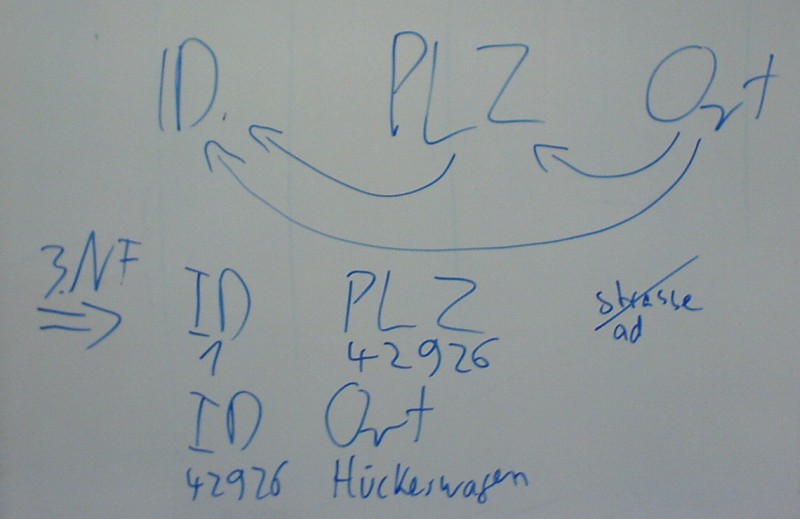 ID PLZ Ort
3.NF
=> ID PLZ strasse
ad
1 42926
ID Ort
42926 Hückeswagen